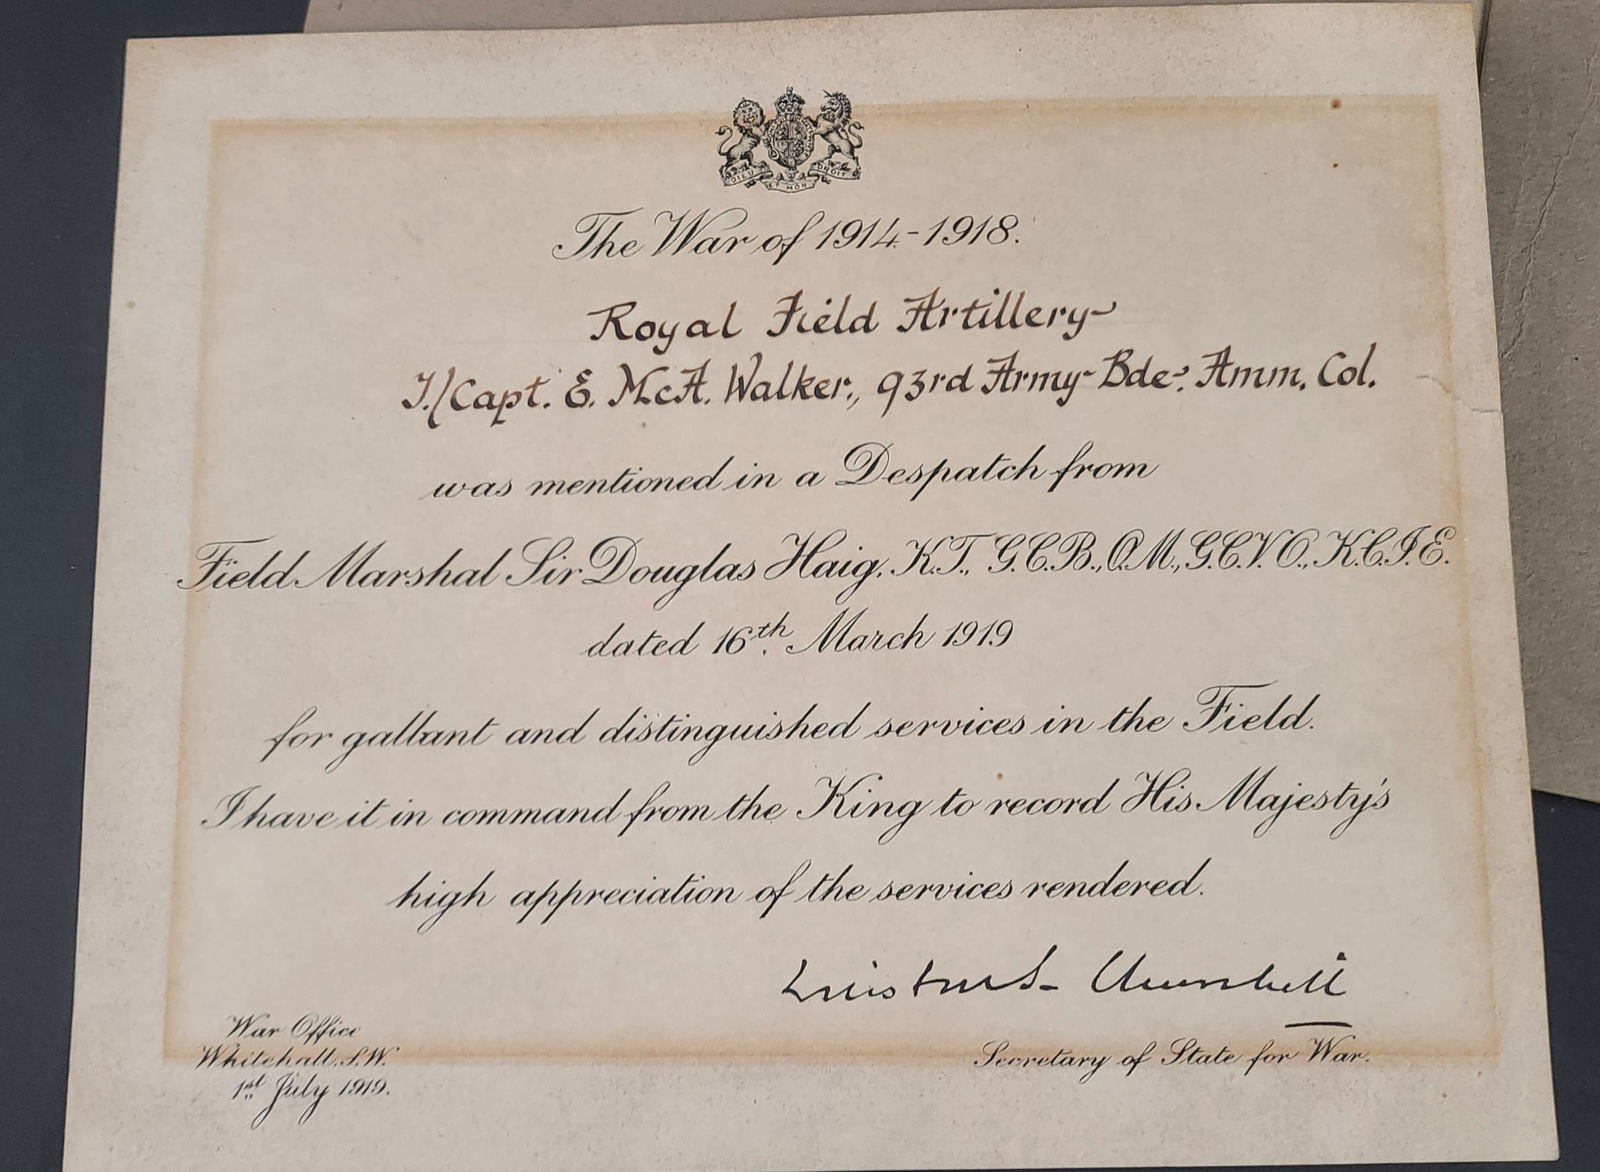 DIEU ET MON DROIT
The War of 1914-1918.
Royal Field Artillery
T./Capt. E. McA. Walker., 93rd Army Bde. Amm. Col.
was mentioned in a Despatch from
Field Marshal Sir Douglas Haig, K.T., G.C.B., O.M., G.C.V.O., K.C.I.E.
dated 16th. March 1919
for gallant and distinguished services in the Field.
I have it in command from the King to record His Majesty's
high appreciation of the services rendered.
Winston S. Churchill
War Office
Whitehall. S.W.
1st. July 1919.
Secretary of State for War.